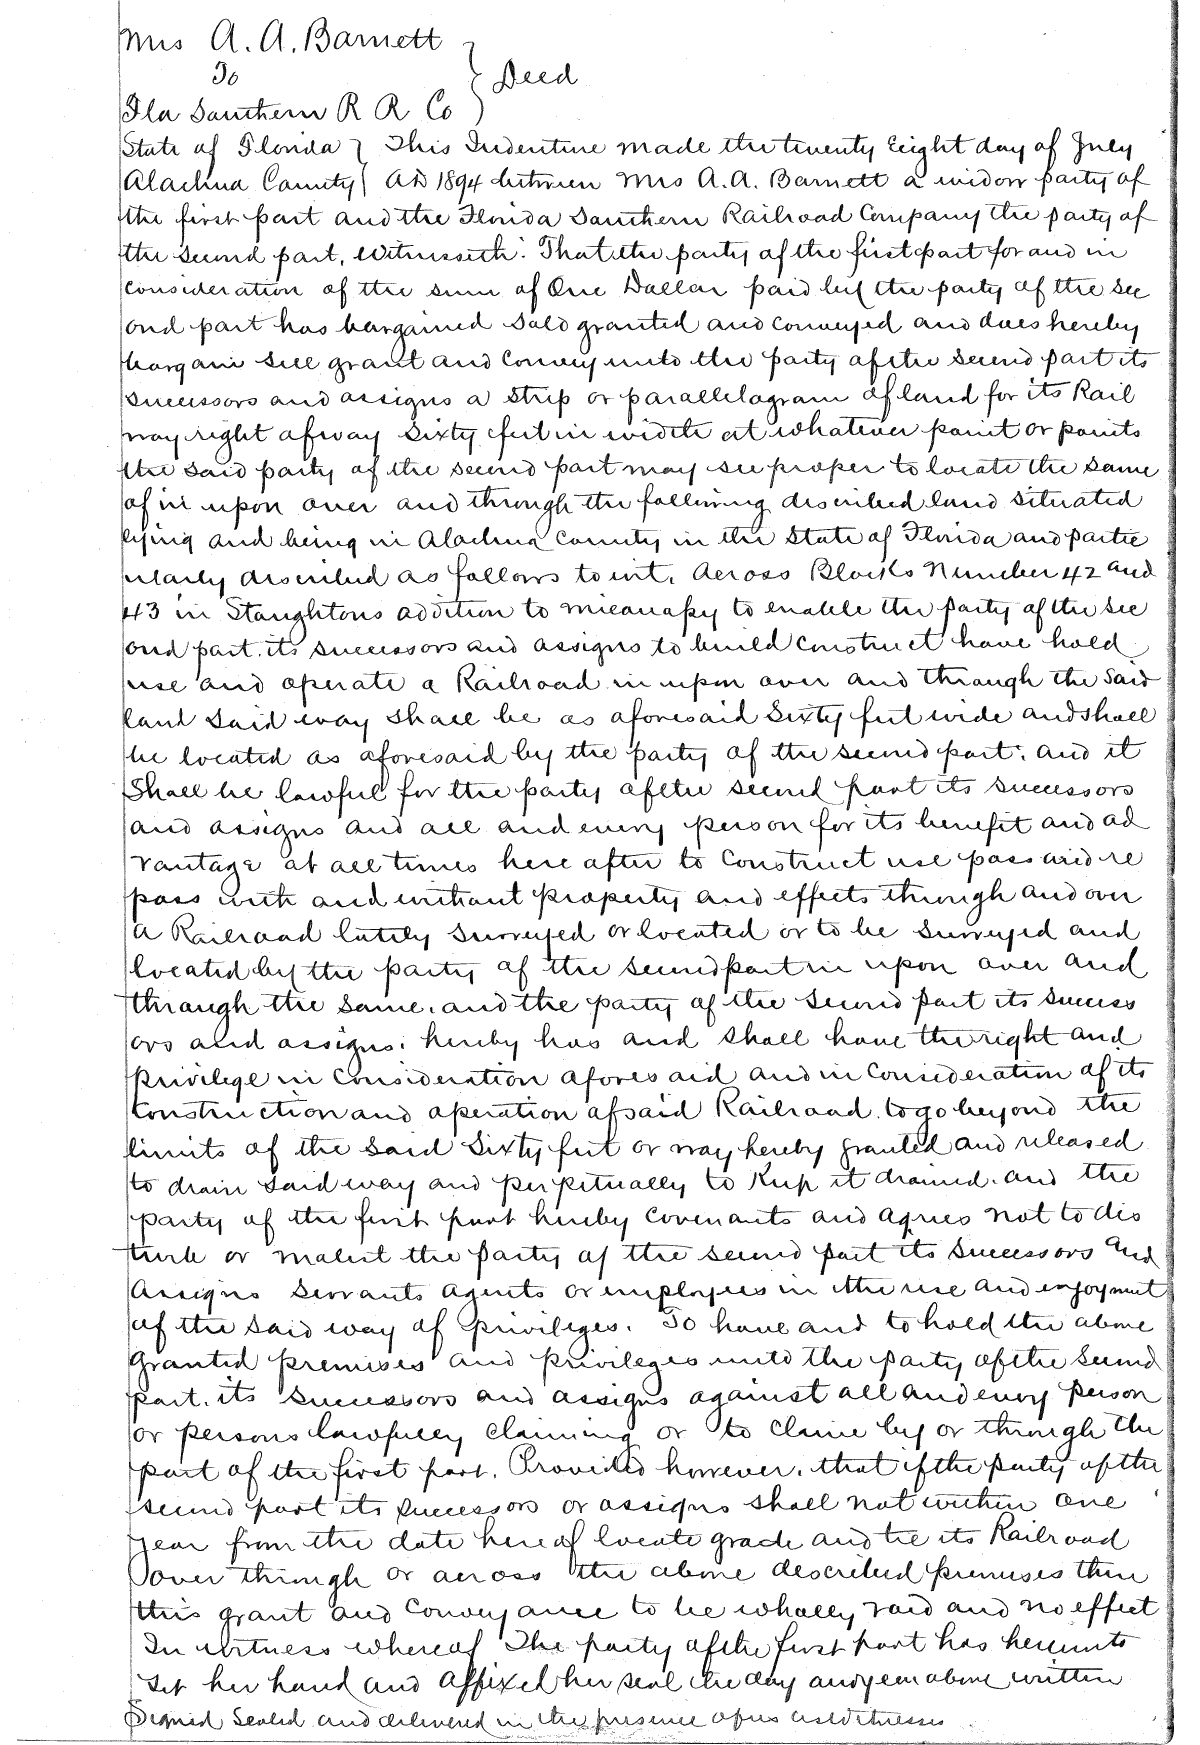 Mrs A. A. Barnett
To
Deed
Fla Southern R R Co
State of Florida } This Indenture made the twenty Eight day of July
Alachua County } AD 1894 between Mrs A. A. Barnett a widow party of
the first part and the Florida Southern Railroad Company the party of
the second part, Witnesseth: That the party of the first part for and in
Consideration of the sum of One Dollar paid by the party of the sec
ond part has bargained sold granted and conveyed and does hereby
bargain sell grant and Convey unto the party of the second part its
successors and assigns a strip or parallelogram of land for its Rail
way right of way Sixty feet in width at whatever point or points
the said party of the second part may see proper to locate the same
of in upon over and through the following described land situated
lying and being in Alachua County in the State of Florida and partic
ularly described as follows to wit. Across Blocks Number 42 and
43 in Staughtons addition to Micanopy to enable the party of the sec
ond part. its successors and assigns to build construct have hold
use and operate a Railroad in upon over and through the said
land said way shall be as aforesaid Sixty feet wide and shall
be located as aforesaid by the party of the second part. and it
Shall be lawful for the party of the second part its successors
and assigns and all and every person for its benefit and ad
vantage at all times here after to Construct use pass and re
pass with and without property and effects through and over
a Railroad lately surveyed or located or to be surveyed and
located by the party of the second part in upon over and
through the same. and the party of the second part its success
ors and assigns. hereby has and shall have the right and
privilege in Consideration aforesaid and in Consideration of its
Construction and operation of said Railroad. to go beyond the
limits of the said Sixty feet or way hereby granted and released
to drain said way and perpetually to keep it drained. and the
party of the first part hereby covenants and agrees not to dis
turb or molest the party of the second part its successors and
assigns servants agents or employees in the use and enjoyment
of the said way of privileges. To have and to hold the above
granted premises and privileges unto the party of the second
part. its successors and assigns against all and every person
or persons lawfully claiming or to claim by or through the
part of the first part. Provided however. that if the party of the
second part its successors or assigns shall not within one
year from the date hereof locate grade and tie its Railroad
over through or across the above described premises then
this grant and conveyance to be wholly void and no effect
In witness whereof The party of the first part has hereunto
set her hand and affixed her seal the day and year above written
Signed Sealed and delivered in the presence of us as Witnesses